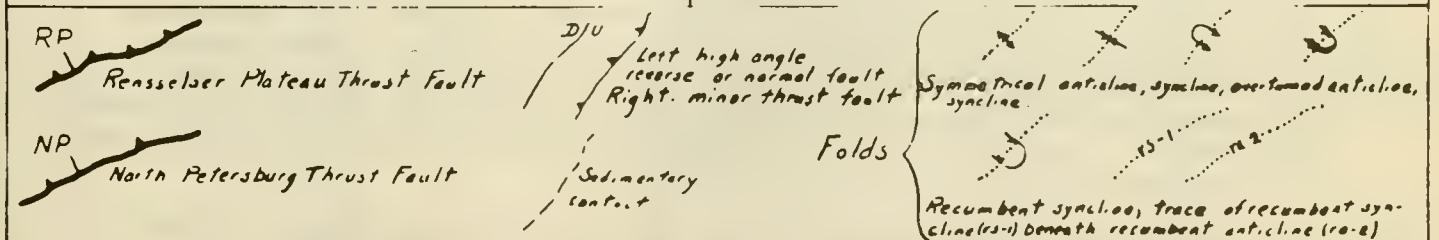 RP
Rensselaer Plateau Thrust Fault
NP
North Petersburg Thrust Fault
D/U
Left high angle
reverse or normal fault
Right. minor thrust fault
Sedimentary
contact
Folds
Symmetrical anticline, syncline, overturned anticline,
syncline.
rs-1
ra-2
Recumbent syncline, trace of recumbent syn-
cline (rs-1) beneath recumbent anticline (ra-2)